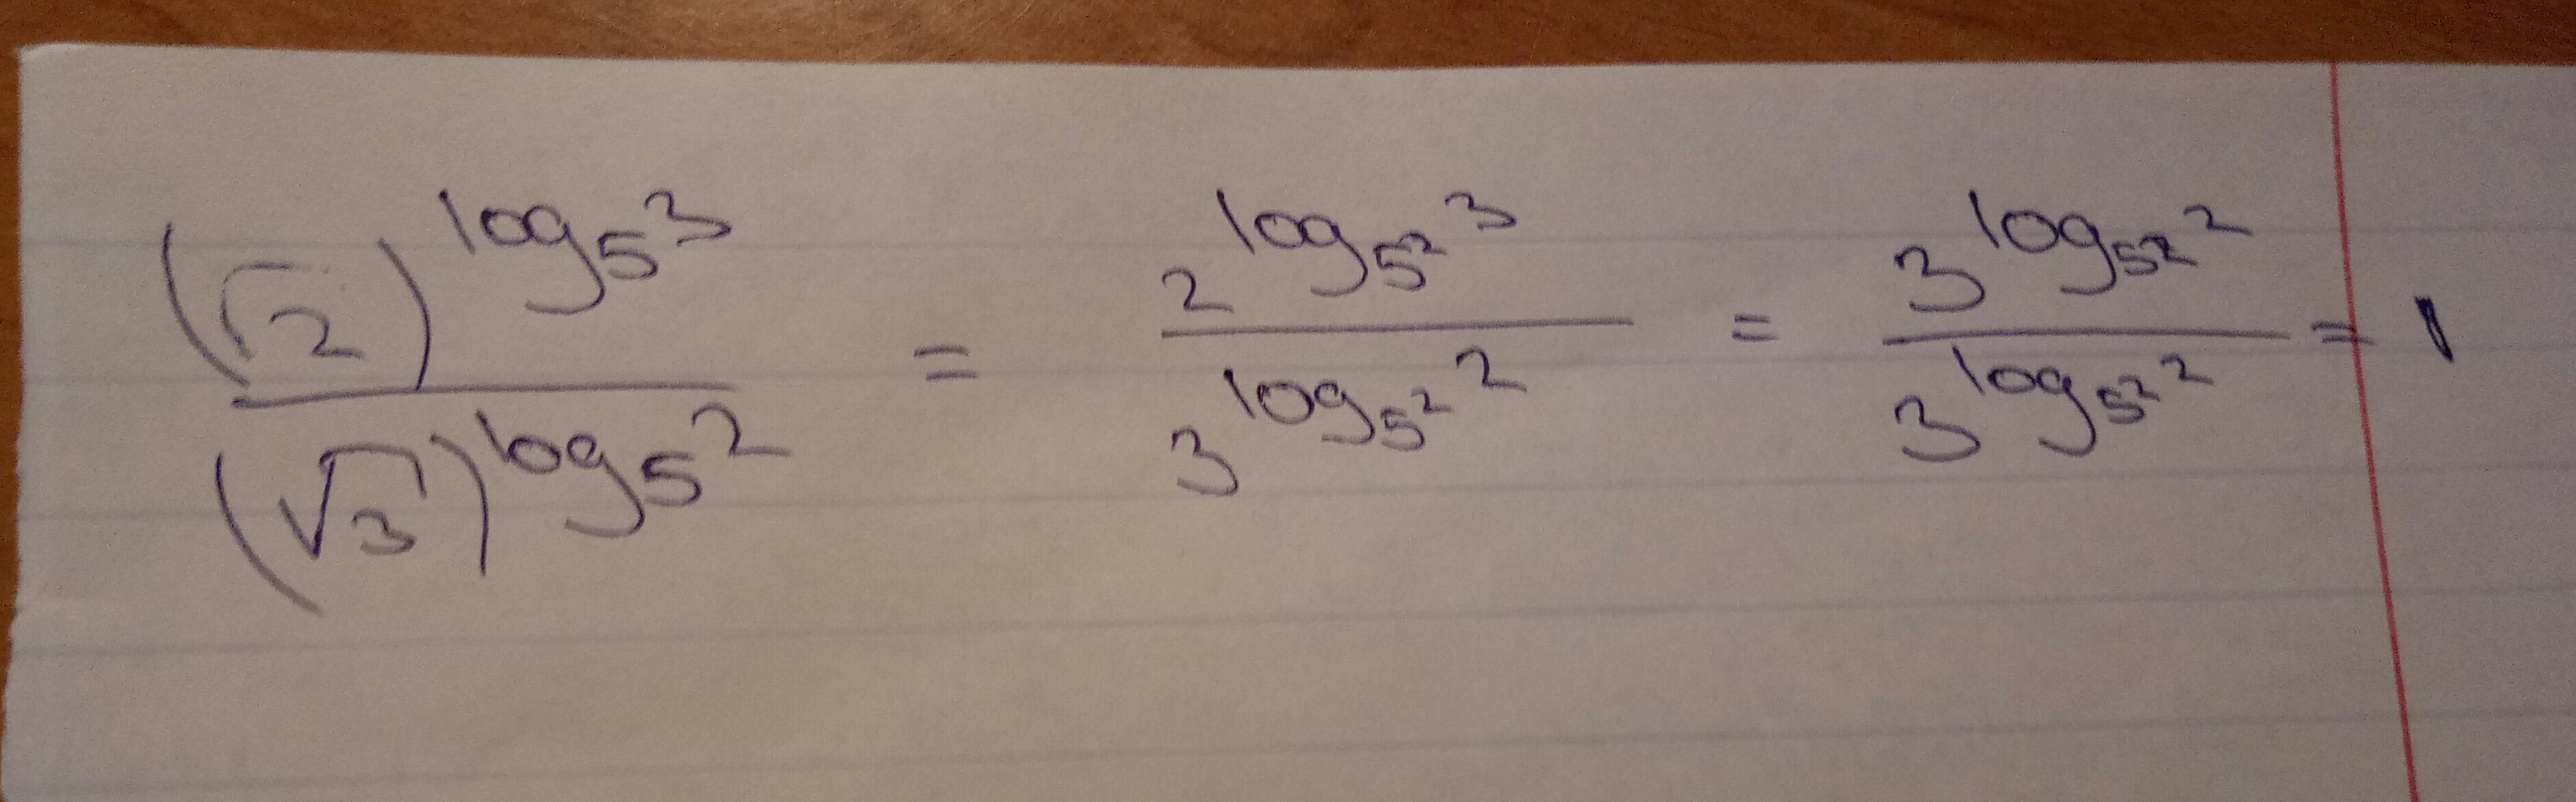 (√2)^{log_5 3} / (√3)^{log_5 2} = 2^{log_{5^2} 3} / 3^{log_{5^2} 2} = 3^{log_{5^2} 2} / 3^{log_{5^2} 2} = 1